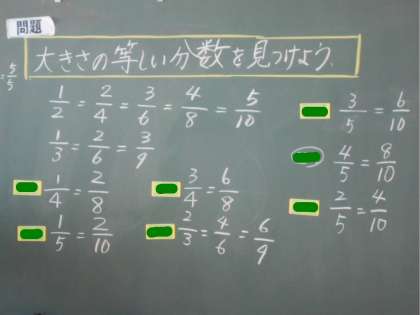 問題
大きさの等しい分数を見つけよう.
= 5/5
1/2 = 2/4 = 3/6 = 4/8 = 5/10
1/3 = 2/6 = 3/9
1/4 = 2/8
1/5 = 2/10
3/4 = 6/8
2/3 = 4/6 = 6/9
3/5 = 6/10
4/5 = 8/10
2/5 = 4/10